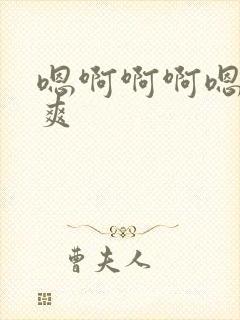 嗯啊啊啊嗯
爽
曹夫人